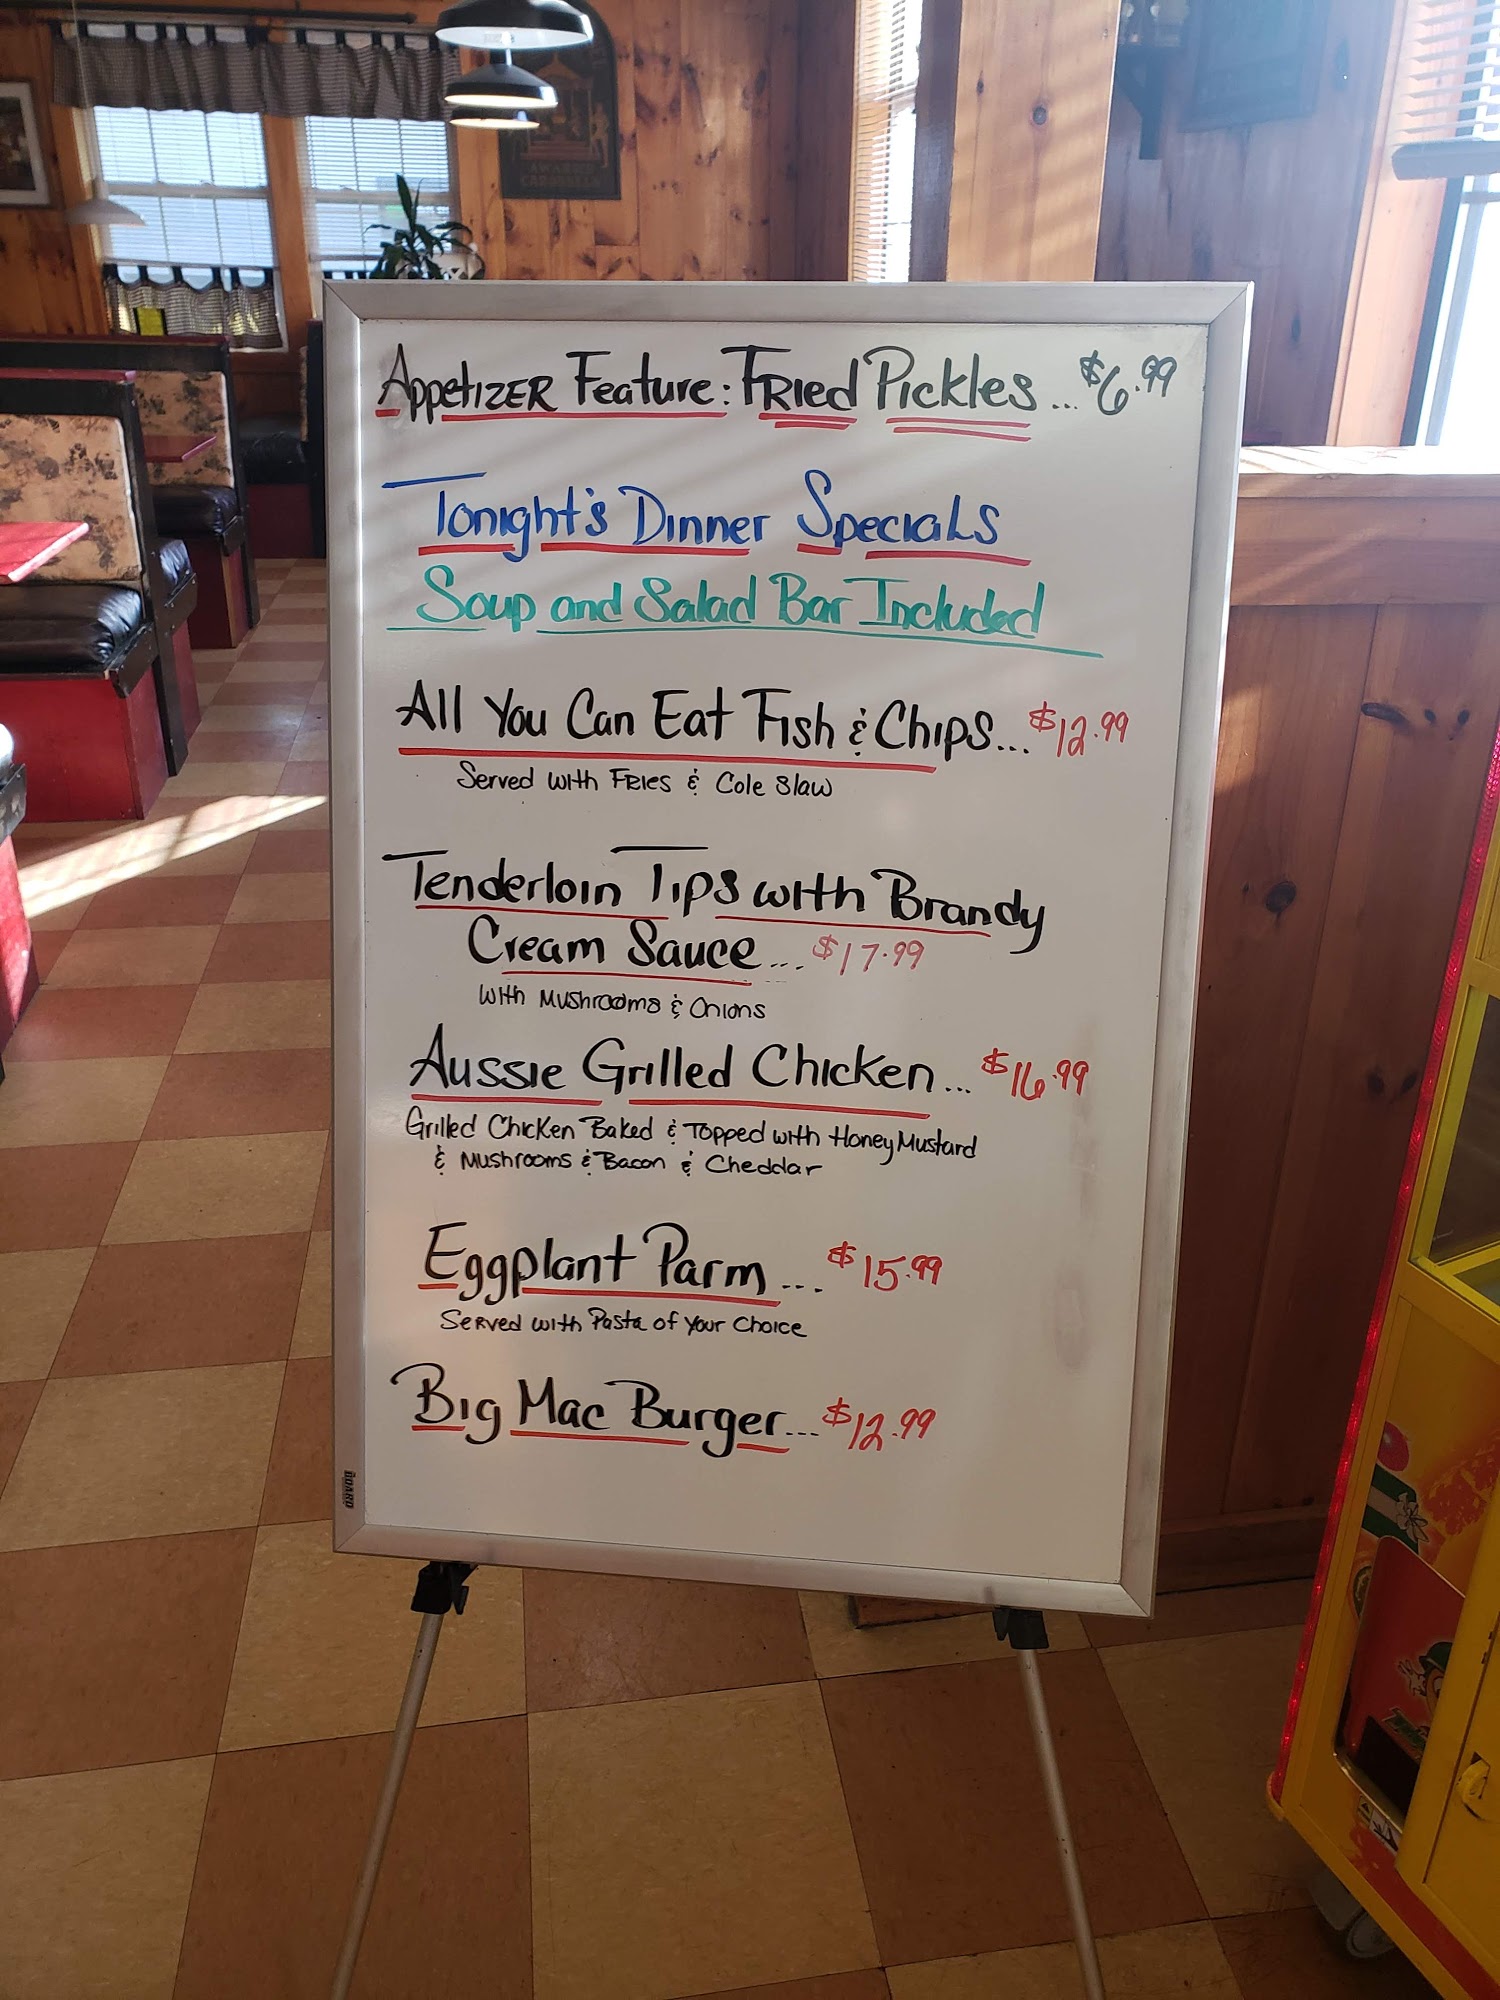 AWARDED
Appetizer Feature: Fried Pickles... $6.99
Tonight's Dinner Specials
Soup and Salad Bar Included
All You Can Eat Fish & Chips... $12.99
Served with Fries & Cole Slaw
Tenderloin Tips with Brandy
Cream Sauce... $17.99
with Mushrooms & Onions
Aussie Grilled Chicken... $16.99
Grilled Chicken Baked & Topped with Honey Mustard
& Mushrooms & Bacon & Cheddar
Eggplant Parm... $15.99
Served with Pasta of Your Choice
Big Mac Burger... $12.99
BOARD